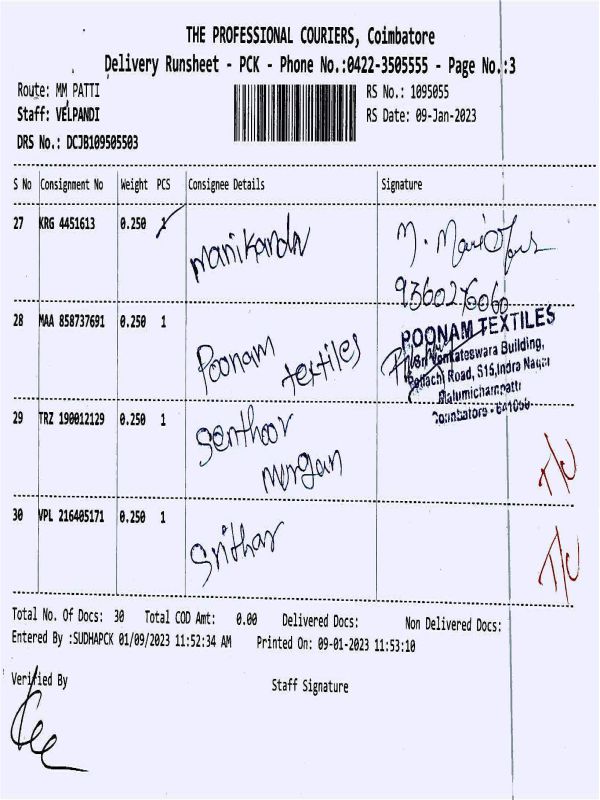 THE PROFESSIONAL COURIERS, Coimbatore
Delivery Runsheet - PCK - Phone No.:0422-3505555 - Page No.:3
Route: MM PATTI RS No.: 1095055
Staff: VELPANDI RS Date: 09-Jan-2023
DRS No.: DCJB109505503
S No Consignment No Weight PCS Consignee Details Signature
27 KRG 4451613 0.250 1 manikandn M.
9360276060
28 MAA 858737691 0.250 1 Poonam textiles
POONAM TEXTILES
Sri Venkateswara Building,
Pollachi Road, S15, Indra Nagar
Malumichampatti
Coimbatore - 641050
29 TRZ 190012129 0.250 1 Senthoor
morgan
30 VPL 216405171 0.250 1 Srithar
Total No. Of Docs: 30 Total COD Amt: 0.00 Delivered Docs: Non Delivered Docs:
Entered By :SUDHAPCK 01/09/2023 11:52:34 AM Printed On: 09-01-2023 11:53:10
Verified By Staff Signature